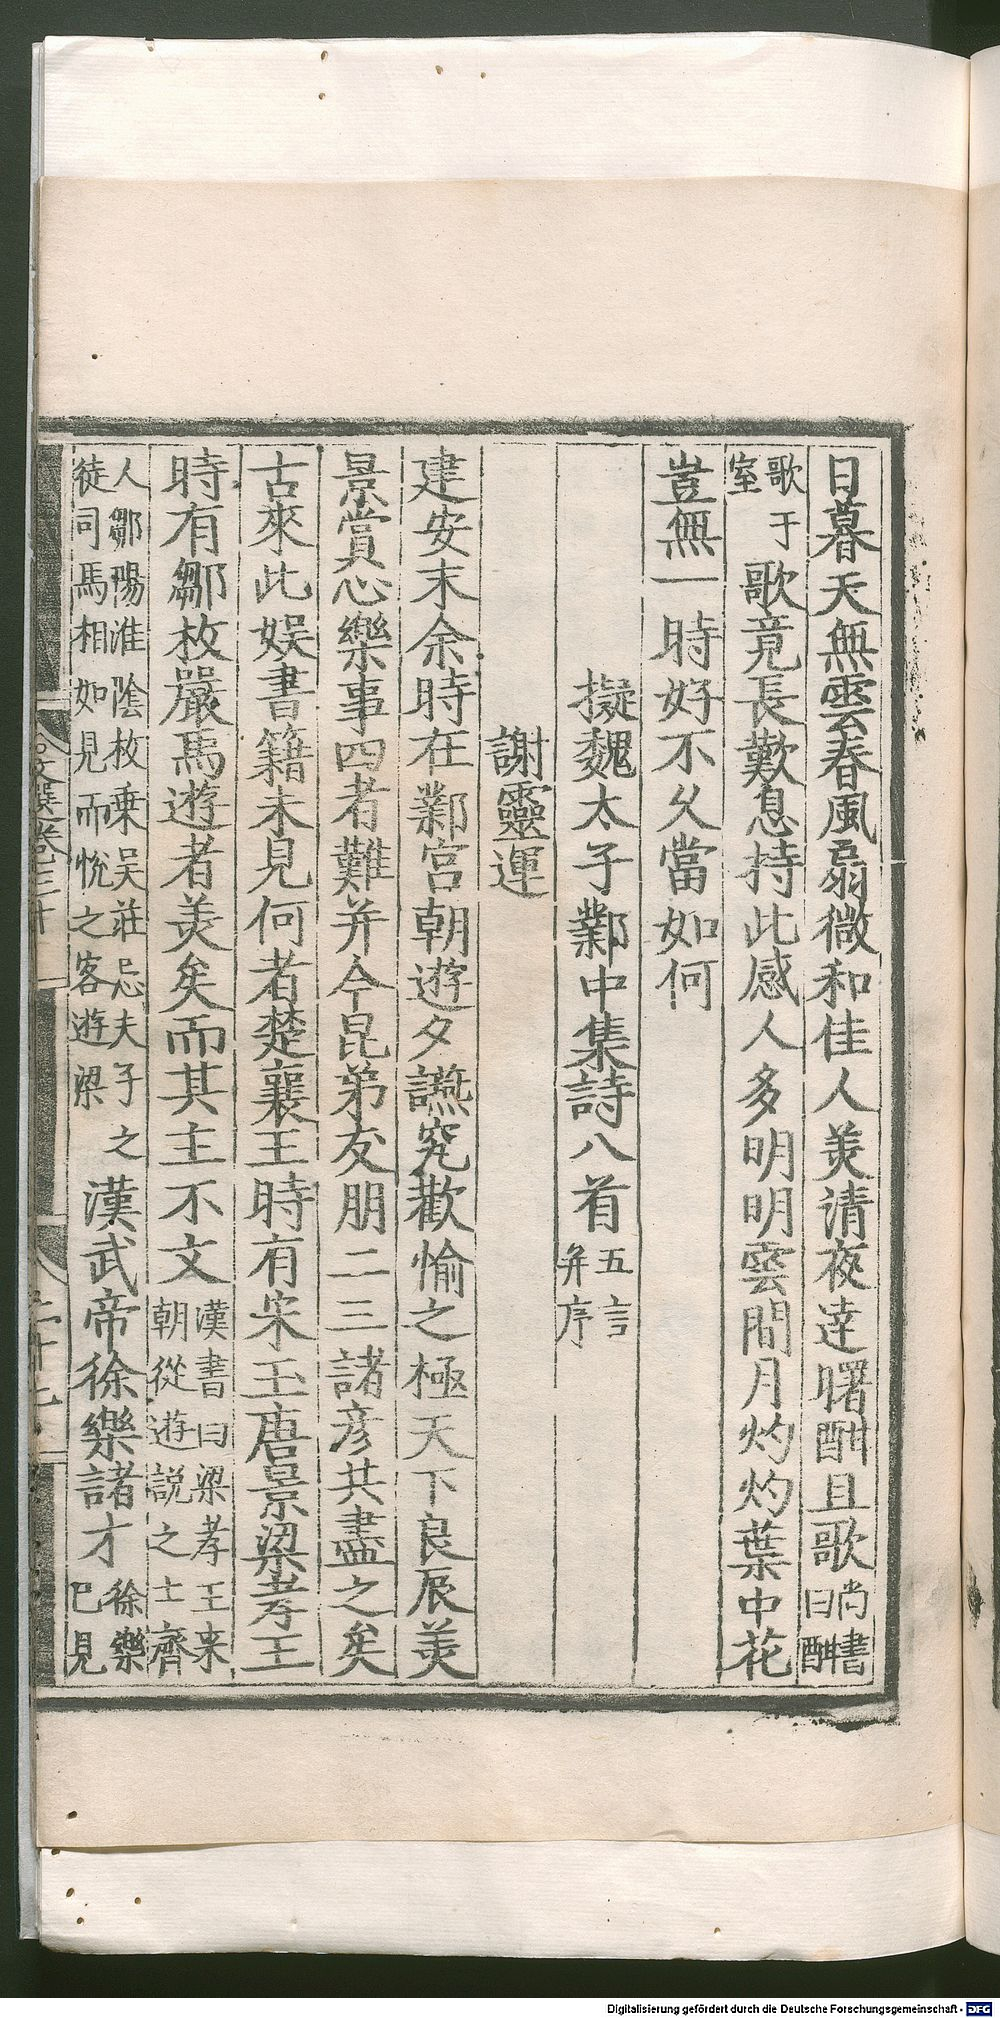 日暮天無雲春風扇微和佳人羙清夜達曙酣且歌尚書曰酣
歌于室歌竟長歎息持此感人多明明雲間月灼灼葉中花
豈無一時好不久當如何
擬魏太子鄴中集詩八首五言并序
謝靈運
建安末余時在鄴宫朝遊夕讌究歡愉之極天下良辰羙
景賞心樂事四者難并今昆弟友朋二三諸彦共盡之矣
古來此娱書籍未見何者楚襄王時有宋玉唐景梁孝王
時有鄒枚嚴馬遊者羙矣而其主不文漢書曰梁孝王来朝從遊説之士齊
人鄒陽淮陰枚乗吴莊忌夫子之徒司馬相如見而悅之客遊梁漢武帝徐樂諸才徐樂巳見
文選卷三十
二十七
Digitalisierung gefördert durch die Deutsche Forschungsgemeinschaft - DFG